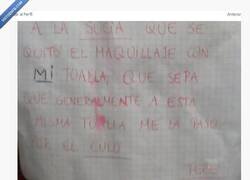 Anterior
A LA SUCIA QUE SE
QUITO EL MAQUILLAJE CON
MI TOALLA QUE SEPA
QUE GENERALMENTE A ESTA
MISMA TOALLA ME LA PASO
POR EL CULO